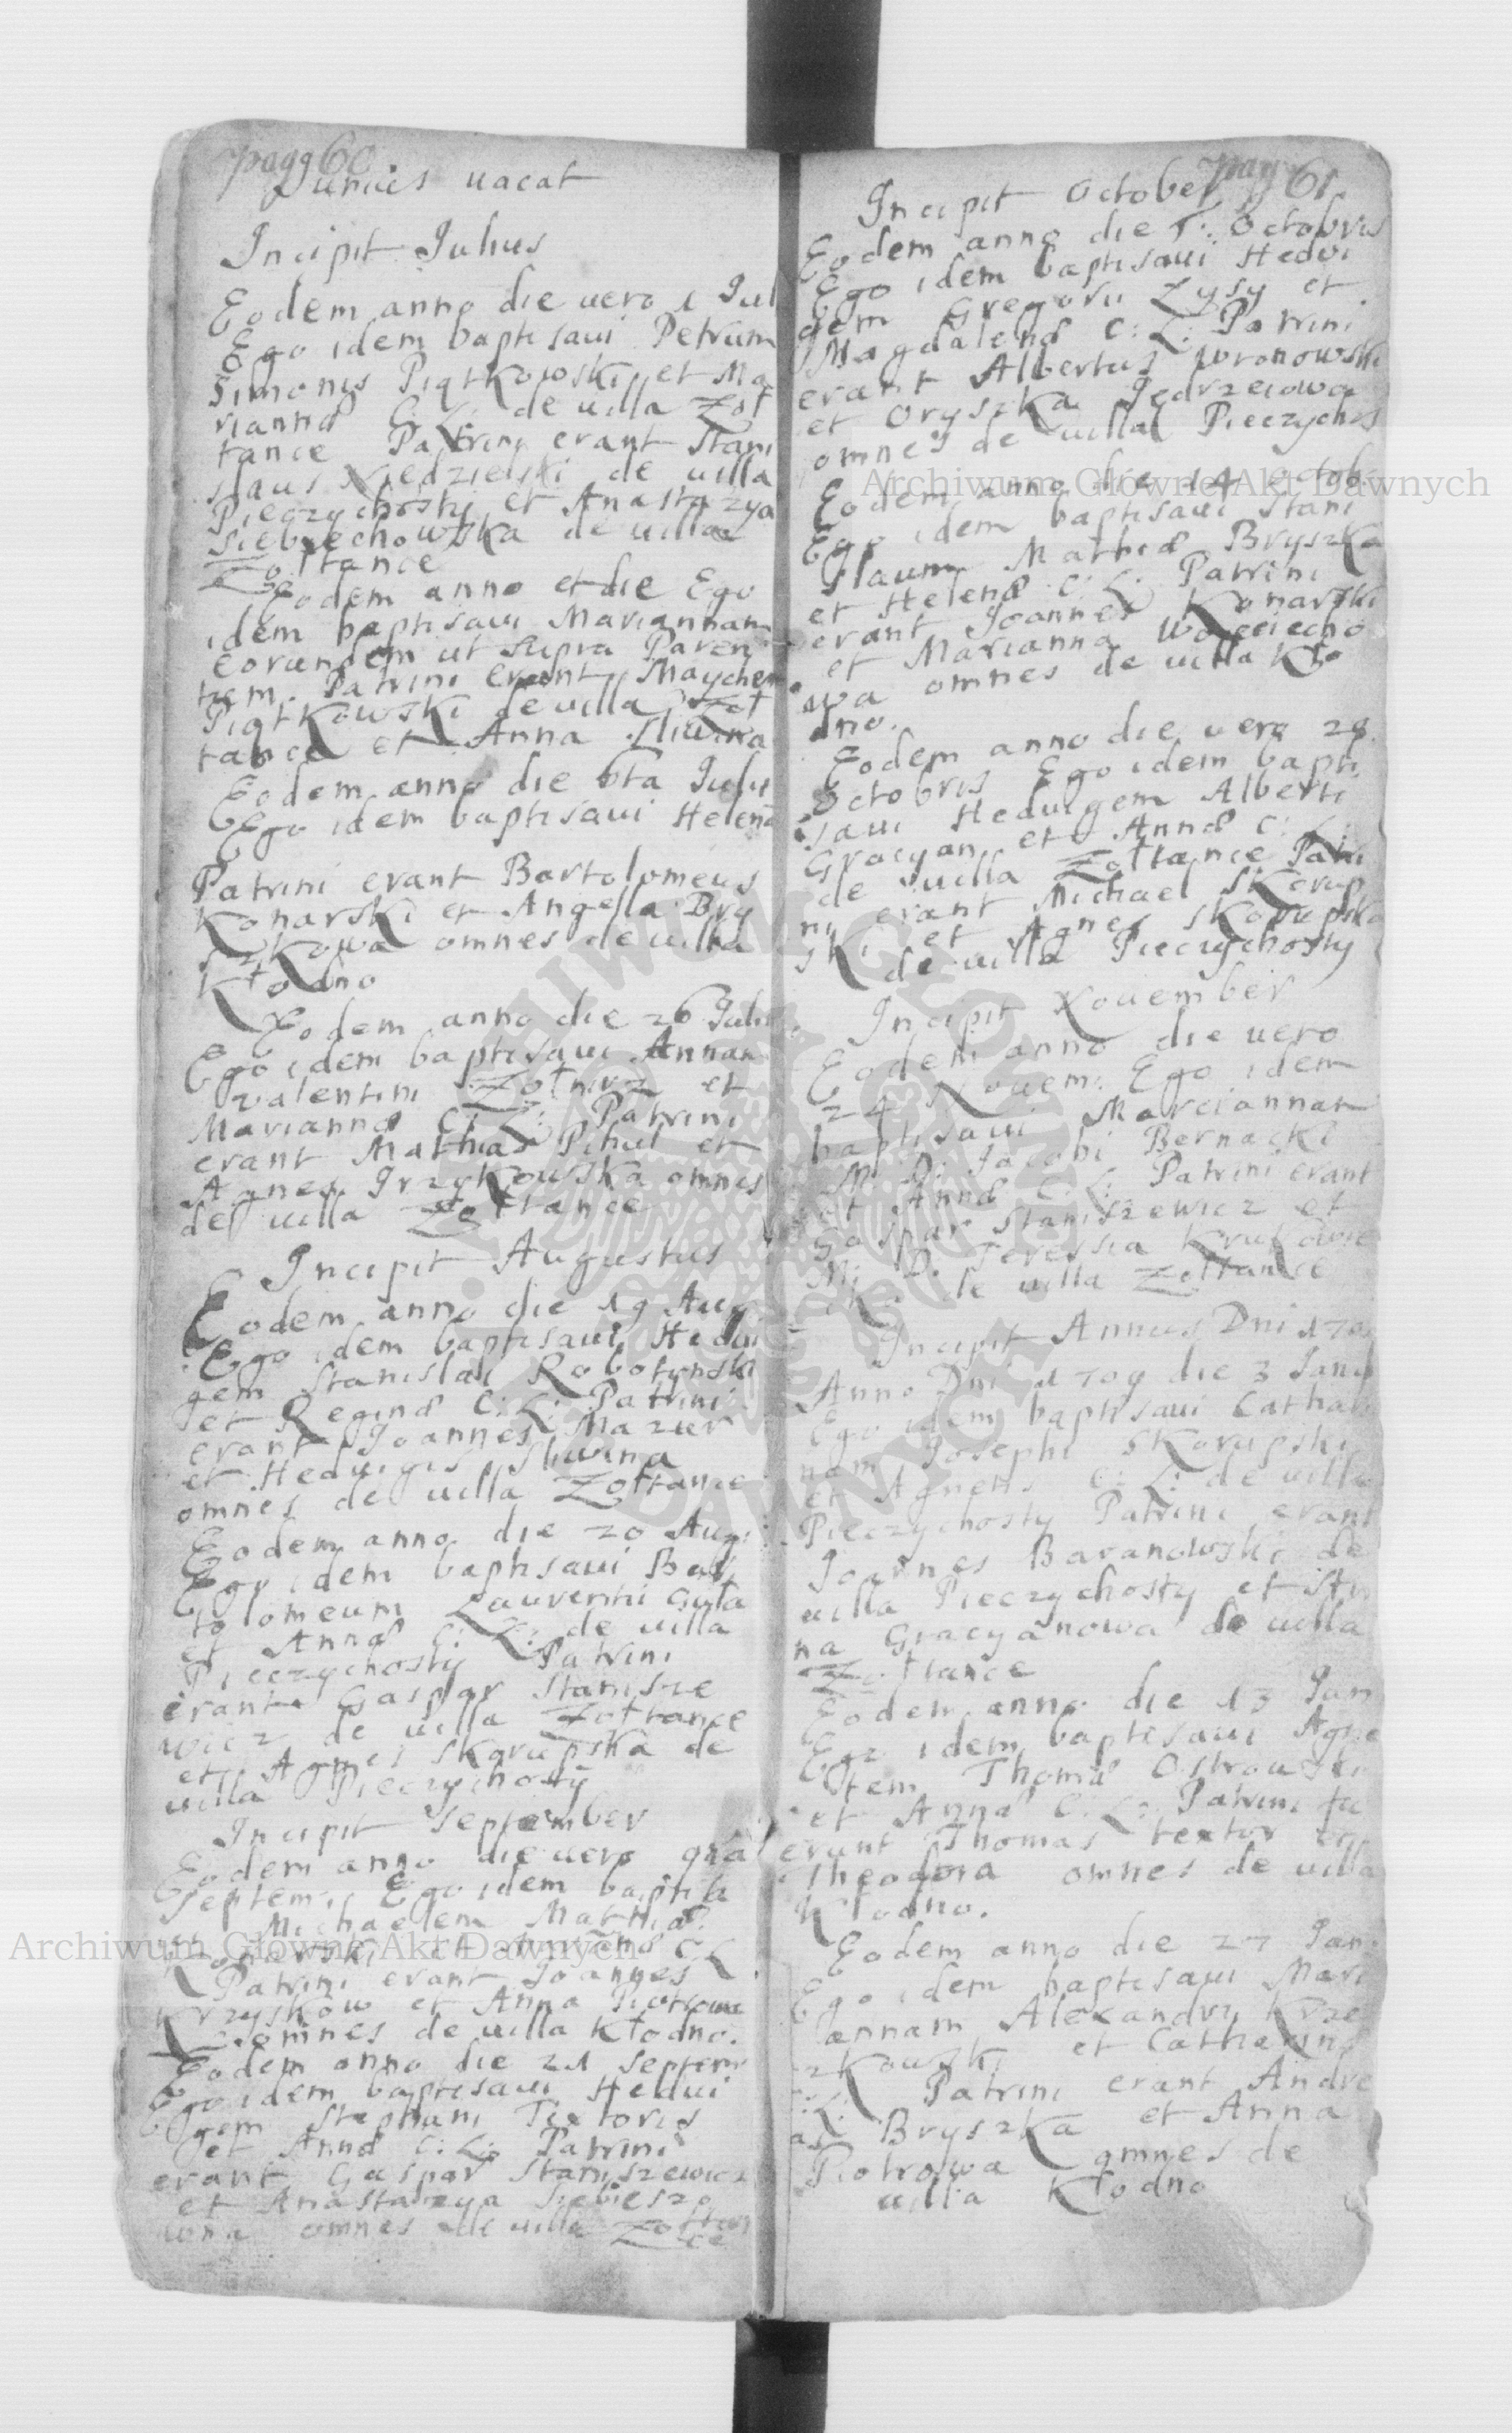 pagg 60
Junius uacat
Incipit Julius
Eodem anno die uero 1 Jul
Ego idem baptisaui Petrum
Simonis Piątkowski et Ma
riannæ C: L: de uilla Zoł
tance Patrini erant Stani
slaus Niedzielski de uilla
Pieczychosty et Anastazya
Siebrechowska de uilla
Zołtance
Eodem anno et die Ego
idem baptisaui Mariannam
eorundem ut supra Paren
tum. Patrini erant
Piątkowski de uilla Zoł
tance et Anna Sliwina
Eodem anno die 6ta Julii
Ego idem baptisaui Helenā
Patrini erant Bartolomeus
Konarski et Angella Bry
szkowa omnes de uilla
Kłodno
Eodem anno die 26 Julii
Ego idem baptisaui Annam
Valentini Zołnirz et
Mariannæ C: L: Patrini
erant Mathias Pihul et
Agnes Grzykowska omnes
de uilla Zołtance
Incipit Augustus
Eodem anno die 19 Aug
Ego idem baptisaui Hedui
gem Stanislai Robotynski
et Reginæ C: L: Patrini
erant Joannes Mazur
et Heduigis Sliwina
omnes de uilla Zołtance
Eodem anno die 20 Aug:
Ego idem baptisaui Bar
tolomeum Laurentii Guła
et Annæ C: L: de uilla
Pieczychosty Patrini
erant Gaspar Stanisze
wicz de uilla Zołtance
et Agnes Skorupska de
uilla Pieczychosty
Incipit September
Eodem anno die uero
Septem: Ego idem baptisa
Michaelem Mathiæ
Konarski et C: L
Patrini erant Joannes
Krzyskow et Anna Piotrowa
omnes de uilla Kłodno.
Eodem anno die 21 Septem
Ego idem baptisaui Hedui
gem Stephani Textoris
et Annæ C: L: Patrini
erant Gaspar Staniszewicz
et Anastazya
omnes de uilla Zołtan
ce
pag 61
Incipit October
Eodem anno die 1: Octobris
Ego idem baptisaui Hedui
gem Gregorii Zysy et
Magdalenæ C: L: Patrini
erant Albertus Wronowski
et Oryszka Jędrzeiowa
omnes de uilla Pieczychos
Eodem anno die 14 octob
Ego idem baptisaui Stani
slaum Mathiæ Bryszka
et Helenæ C: L: Patrini
erant Joannes Konarski
et Marianna Woyciecho
wa omnes de uilla Kło
dno.
Eodem anno die uero 28
Octobris Ego idem bapti
saui Heduigem Alberti
Gracyan et Annæ C: L:
de uilla Zołtance Patri
ni erant Michael Skorup
ski et Agnes Skorupska
de uilla Pieczychosty
Incipit Nouember
Eodem anno die uero
24 Nouem: Ego idem
baptisaui Mariannam
M: D: Jacobi Bernacki
et Annæ C: L: Patrini erant
Gaspar Staniszewicz et
M: D. Teressia Krukowie
cka de uilla Zołtance
Incipit Annus Dni 170
Anno Dni 1709 die 3 Janu
Ego idem baptisaui Cathari
nam Josephi Skorupski
et Agnetis C: L: de uilla
Pieczychosty Patrini erant
Joannes Baranowski de
uilla Pieczychosty et An
na Gracyanowa de uilla
Zołtance
Eodem anno die 13 Jan
Ego idem baptisaui Agne
tem Thomæ Ostrowski
et Annæ C: L: Patrini fu
erunt Thomas textor et
Theodora omnes de uilla
Kłodno.
Eodem anno die 27 Jan
Ego idem baptisaui Mari
annam Alexandry Krze
szkowski et Catharinæ
C: L: Patrini erant Andre
as Bryszka et Anna
Piotrowa omnes de
uilla Kłodno
Archiwum Główne Akt Dawnych
Archiwum Główne Akt Dawnych
ARCHIWUM GŁÓWNE AKT DAWNYCH